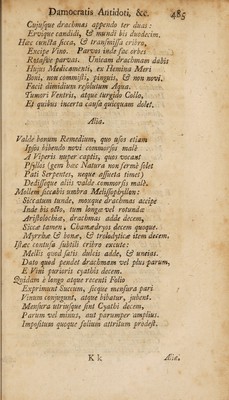 Damocratis Antidoti, &c. 485
Cujusque drachmas appendo ter duas:
Ervique candidi, & mundi bis duodecim.
Hæc cuncta sicca, & transmissa cribro,
Excipe Vino. Parvos inde fac orbes
Rotasve parvas. Unicam drachmam dabis
Hujus Medicamenti, ex Hemina Meri
Boni, non commisti, pinguis, & mu novi.
Facit dimidium resolutum Aqua.
Tumori Ventris, atque turgido Collo,
Et quibus incerta causa quicquam dolet.
Alia.
Valde bonum Remedium, quo usos etiam
Ipsos bibendo novi commorsos male
A Viperis nuper captis, quas vocant
Psyllos (gem hæc Natura non fermè solet
Pati Serpentes, neque assueta timet)
Dedisseque aliis valde commorsis malè.
Mollem siccabis umbra Melissophyllum:
Siccatum tunde, moxque drachmas accipe
Inde bis octo, tum longæ vel rotundæ
Aristolochiæ, drachmas adde decem,
Siccæ tamen, Chamædryos decem quoque.
Myrrhæ & bonæ, & troglodyticæ item decem.
Istæc contusa subtili cribro excute:
Mellis quod satis dulcis adde, & uneias.
Dato quod pendet drachmam vel plus parum,
E Vini purioris cyathis decem.
Quidam è longo atque recenti Folio
Exprimunt Succum, sicque mensura pari
Vinum conjungunt, atque bibatur, jubent.
Mensura utriusque sint Cyathi decem,
Parum vel minus, aut parumper amplius.
Impositum quoque folium attritum prodest.
K k Alia.